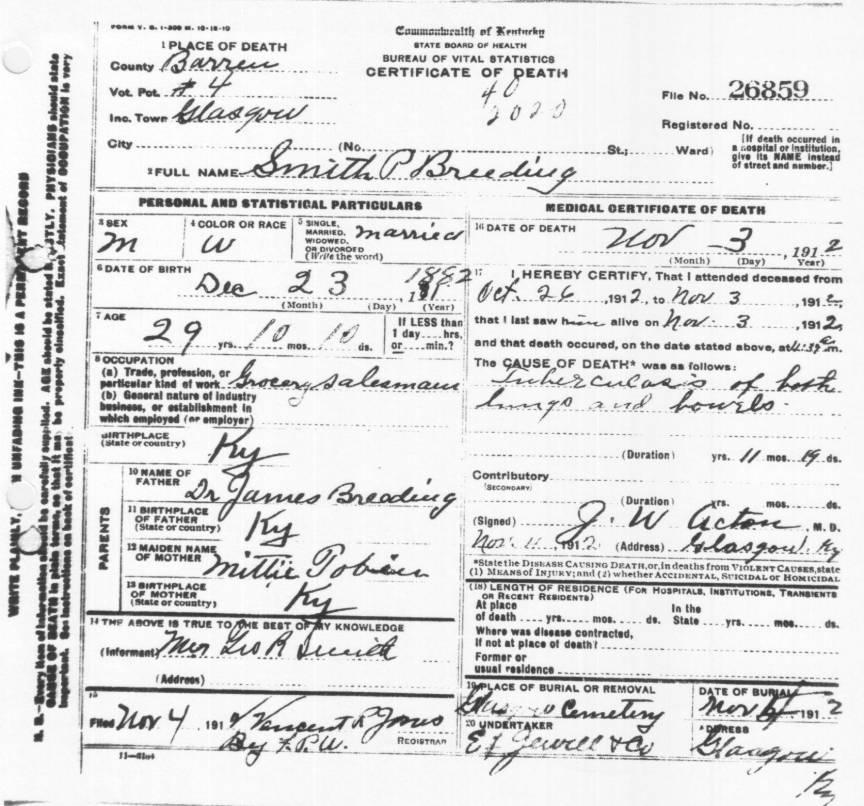 FORM V. S. 1-300 M. 10-18-10
Commonwealth of Kentucky
STATE BOARD OF HEALTH
BUREAU OF VITAL STATISTICS
CERTIFICATE OF DEATH
1 PLACE OF DEATH
County Barren
Vot. Pct. # 4
Inc. Town Glasgow
City (No. St.; Ward)
40
2020
File No. 26859
Registered No.
[If death occurred in a hospital or institution, give its NAME instead of street and number.]
2 FULL NAME Smith P Breeding
PERSONAL AND STATISTICAL PARTICULARS
3 SEX M
4 COLOR OR RACE W
5 SINGLE, MARRIED, WIDOWED, OR DIVORCED (Write the word) Married
6 DATE OF BIRTH Dec 23 1882
(Month) (Day) (Year)
7 AGE 29 yrs. 10 mos. 10 ds.
If LESS than 1 day ... hrs. or ... min.?
8 OCCUPATION
(a) Trade, profession, or particular kind of work Grocery Salesman
(b) General nature of industry business, or establishment in which employed (or employer)
BIRTHPLACE (State or country) Ky
PARENTS
10 NAME OF FATHER Dr James Breeding
11 BIRTHPLACE OF FATHER (State or country) Ky
12 MAIDEN NAME OF MOTHER Mittie
13 BIRTHPLACE OF MOTHER (State or country) Ky
14 THE ABOVE IS TRUE TO THE BEST OF MY KNOWLEDGE
(Informant) Geo R Smith
(Address)
15
Filed Nov 4 191 Vincent R Jones
By F.P.W. REGISTRAR
MEDICAL CERTIFICATE OF DEATH
16 DATE OF DEATH Nov 3, 1912
(Month) (Day) Year)
17 I HEREBY CERTIFY, That I attended deceased from
Oct. 26, 1912, to Nov 3, 1912,
that I last saw him alive on Nov. 3, 1912,
and that death occured, on the date stated above, at m.
The CAUSE OF DEATH* was as follows:
Tuberculosis of both
lungs and bowels.
(Duration) yrs. 11 mos. 19 ds.
Contributory
(SECONDARY)
(Duration) yrs. mos. ds.
(Signed) J. W. Acton, M. D.
Nov 11, 1912 (Address) Glasgow Ky
*State the DISEASE CAUSING DEATH, or, in deaths from VIOLENT CAUSES, state
(1) MEANS OF INJURY; and (2) whether ACCIDENTAL, SUICIDAL or HOMICIDAL
(18) LENGTH OF RESIDENCE (FOR HOSPITALS, INSTITUTIONS, TRANSIENTS
OR RECENT RESIDENTS)
At place of death yrs. mos. ds. In the State yrs. mos. ds.
Where was disease contracted,
If not at place of death?
Former or
usual residence
19 PLACE OF BURIAL OR REMOVAL Cemetery
DATE OF BURIAL Nov 4 1912
20 UNDERTAKER Jewell & Co
ADDRESS Glasgow Ky
WRITE PLAINLY, UNFADING INK—THIS IS A PERMANENT RECORD
N. B.—Every item of information should be carefully supplied. AGE should be stated EXACTLY. PHYSICIANS should state
CAUSE OF DEATH in plain terms, so that it may be properly classified. Exact statement of OCCUPATION is very
important. See instructions on back of certificate.